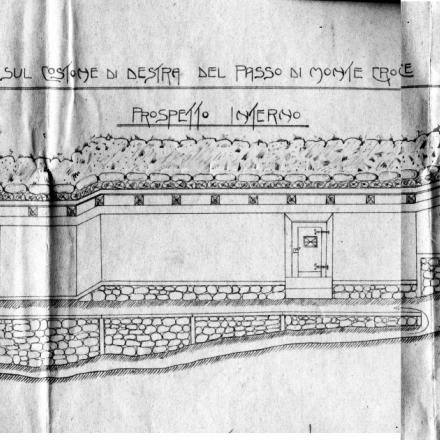 SUL COSTONE DI DESTRA DEL PASSO DI MONTE CROCE
PROSPETTO INTERNO